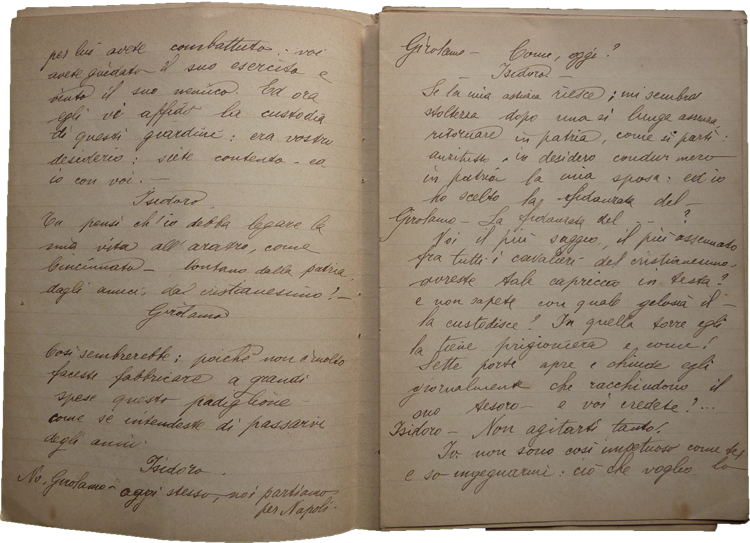 per lui avete combattuto: voi
avete guidato il suo esercito e
vinto il suo nemico. Ed ora
egli vi affidò la custodia
di questi giardini: era vostro
desiderio: siete contento – ed
io con voi. –
Isidoro
Tu pensi ch'io debba legare la
mia vita all'aratro, come
Cincinnato – lontano della patria
dagli amici, dal cristianesimo? –
Girolamo
Così sembrerebbe; poichè non è molto
faceste fabbricare a grandi
spese questo padiglione
come se intendeste di passarvi
degli anni.
Isidoro.
No, Girolamo – oggi stesso, noi partiamo
per Napoli.
Girolamo – Come, oggi?
– Isidoro –
Se la mia astuzia riesce; mi sembra
stoltezza dopo una sì lunga assenza
ritornare in patria, come si partì:
anzitutto, io desidero condur meco
in patria la mia sposa: ed io
ho scelto la fidanzata del –
Girolamo – La fidanzata del – – ?
Voi il più saggio, il più assennato
fra tutti i cavalieri del cristianesimo,
avreste tale capriccio in testa?
e non sapete con quale gelosia il –
la custodisce? In quella torre egli
la tiene prigioniera e come!
Sette porte apre e chiude egli
giornalmente che racchiudono il
suo tesoro – e voi credete? ...
Isidoro – Non agitarti tanto!
Io non sono così impetuoso come te
e so ingegnarmi: ciò che voglio lo